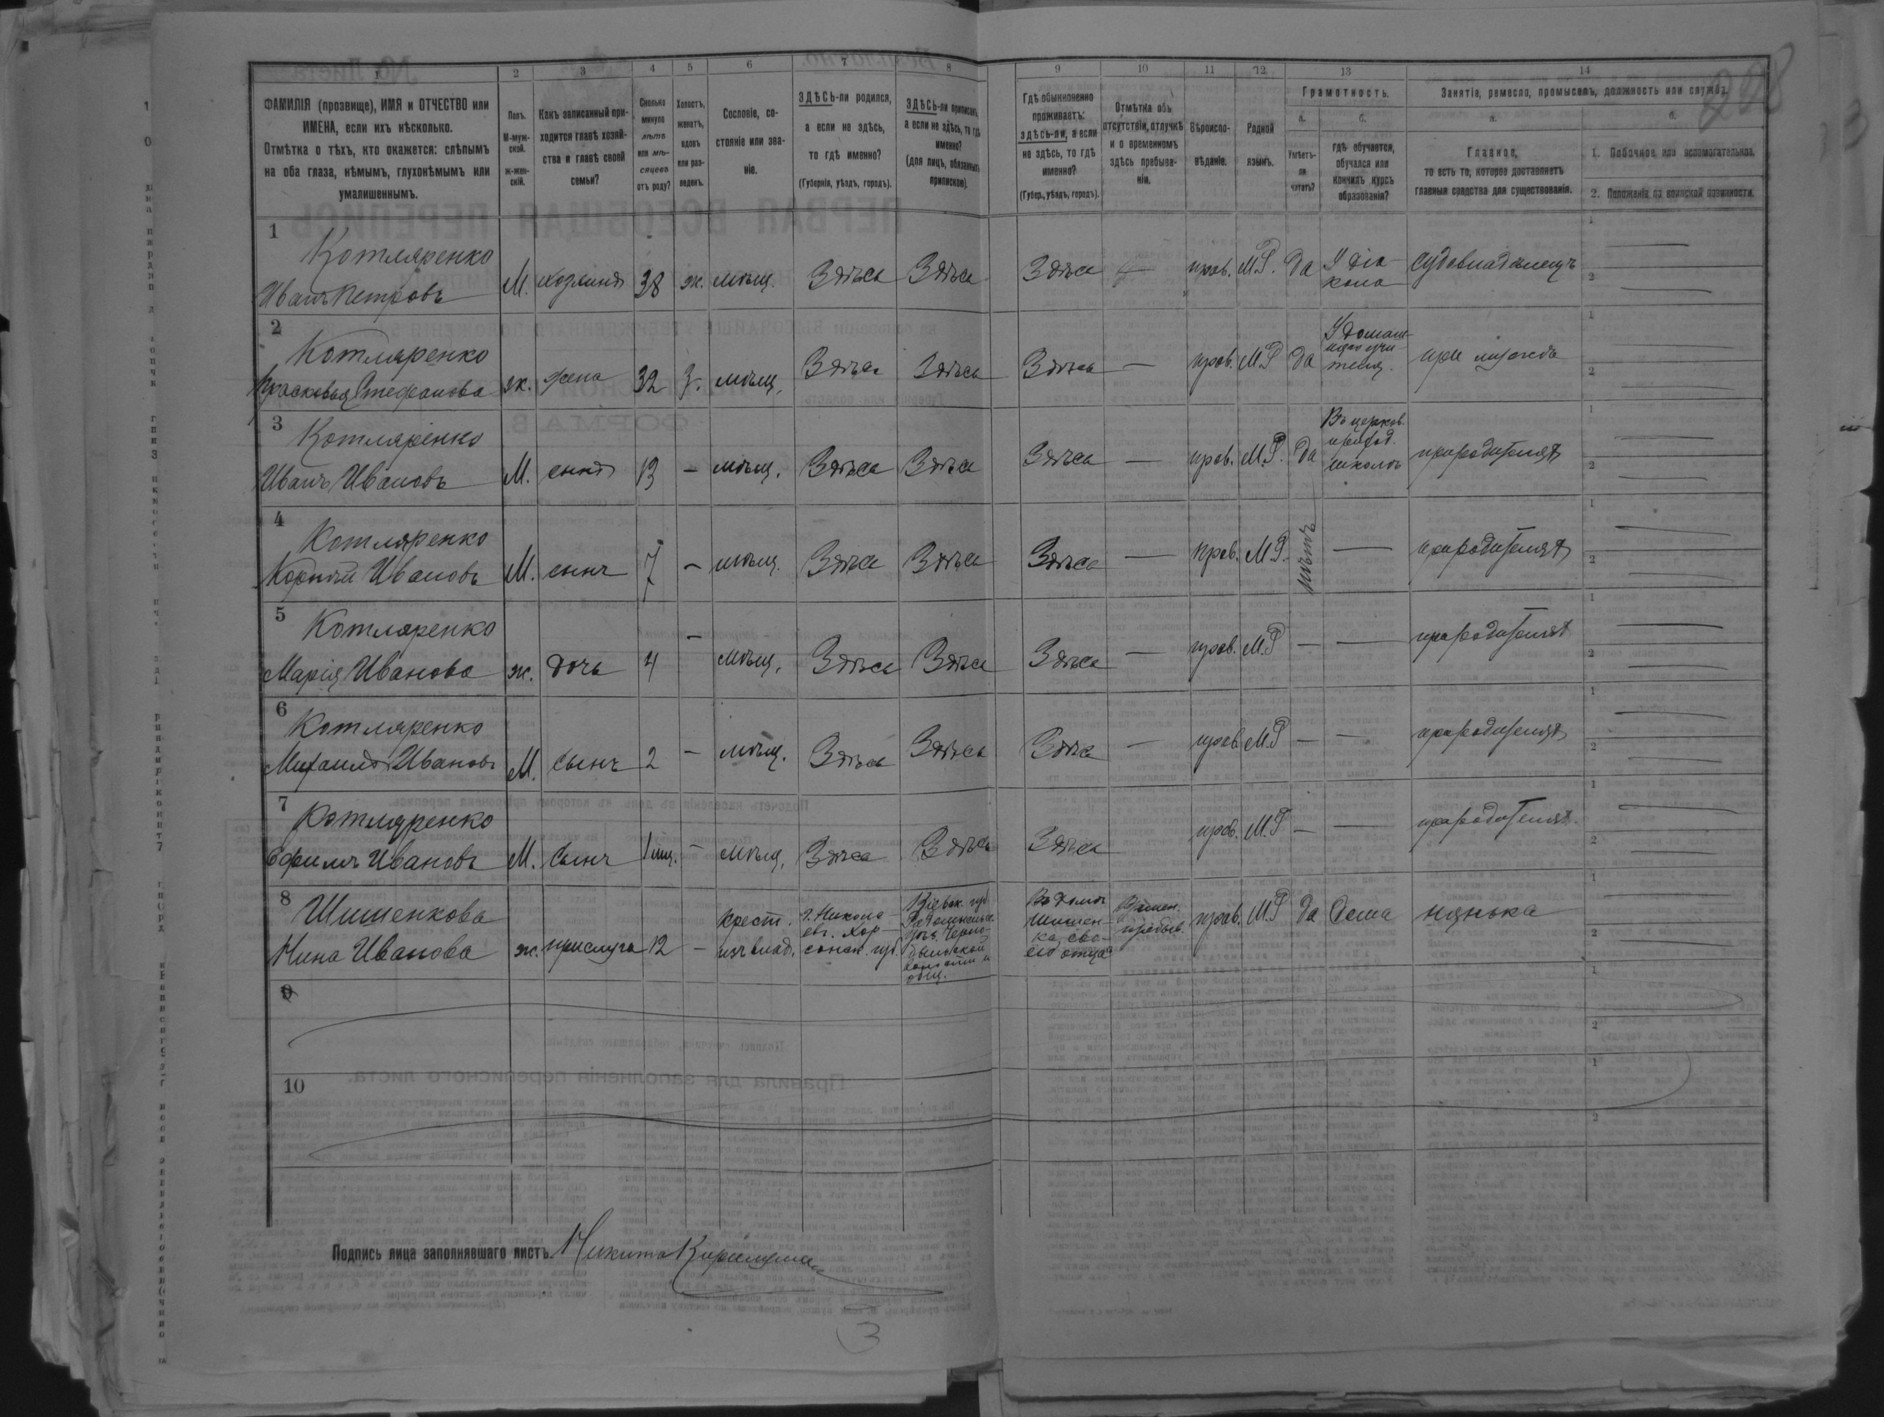 1 2 3 4 5 6 7 8 9 10 11 12 13 14
ФАМИЛІЯ (прозвище), ИМЯ и ОТЧЕСТВО или
ИМЕНА, если ихъ нѣсколько.
Отмѣтка о тѣхъ, кто окажется: слѣпымъ
на оба глаза, нѣмымъ, глухонѣмымъ или
умалишеннымъ.
Полъ.
М-муж-
ской.
ж-жен-
скій.
Какъ записанный при-
ходится главѣ хозяй-
ства и главѣ своей
семьи?
Сколько
минуло
лѣтъ
или мѣ-
сяцевъ
отъ роду?
Холостъ,
женатъ,
вдовъ
или раз-
веденъ.
Сословіе, со-
стояніе или зва-
ніе.
ЗДѢСЬ-ли родился,
а если не здѣсь,
то гдѣ именно?
(Губернія, уѣздъ, городъ).
ЗДѢСЬ-ли приписанъ,
а если не здѣсь, то гдѣ
именно?
(для лицъ, обязанныхъ
припискою).
Гдѣ обыкновенно
проживаетъ:
здѣсь-ли, а если
не здѣсь, то гдѣ
именно?
(Губер., уѣздъ, городъ).
Отмѣтка объ
отсутствіи, отлучкѣ
и о временномъ
здѣсь пребыва-
ніи.
Вѣроиспо-
вѣданіе.
Родной
языкъ.
Грамотность.
а.
Умѣетъ-
ли
читать?
б.
гдѣ обучается,
обучался или
кончилъ курсъ
образованія?
Занятіе, ремесло, промыселъ, должность или служба.
а.
Главная,
то есть то, которое доставляетъ
главныя средства для существованія.
б.
1. Побочное или вспомогательное.
2. Положеніе по воинской повинности.
228
1
Котляренко
Иванъ Петровъ
М. хозяинъ 38 ж. мѣщ. Здѣсь Здѣсь Здѣсь — прав. М.Р. да У дья-
кона
судовладѣлецъ
2
Котляренко
Прасковья Стефанова
ж. жена 32 з. мѣщ. Здѣсь Здѣсь Здѣсь — прав. М.Р. да У домаш-
няго учи-
теля.
при мужѣ
3
Котляренко
Иванъ Ивановъ
М. сынъ 13 — мѣщ. Здѣсь Здѣсь Здѣсь — прав. М.Р. да Въ церков.
приход.
школѣ
при родителях
4
Котляренко
Корній Ивановъ
М. сынъ 7 — мѣщ. Здѣсь Здѣсь Здѣсь — прав. М.Р. нѣтъ — при родителях
5
Котляренко
Марія Иванова
ж. дочь 4 — мѣщ. Здѣсь Здѣсь Здѣсь — прав. М.Р. — — при родителях
6
Котляренко
Михаилъ Ивановъ
М. сынъ 2 — мѣщ. Здѣсь Здѣсь Здѣсь — прав. М.Р — — при родителях
7
Котляренко
Ефимъ Ивановъ
М. сынъ 1 мѣц. — мѣщ. Здѣсь Здѣсь Здѣсь прав. М.Р — — при родителях
8
Шишенкова
Нина Иванова
ж. прислуга 12 — крест.
изъ влад.
г. Никола-
евъ. Хер-
сонск. губ.
Кіевск. губ.
Въ домѣ
Шишен-
ка, сво-
его отца
Времен.
пребыв.
прав. М.Р да Дома нянька
9
10
1
2
Подпись лица заполнявшаго листъ. Никита
3